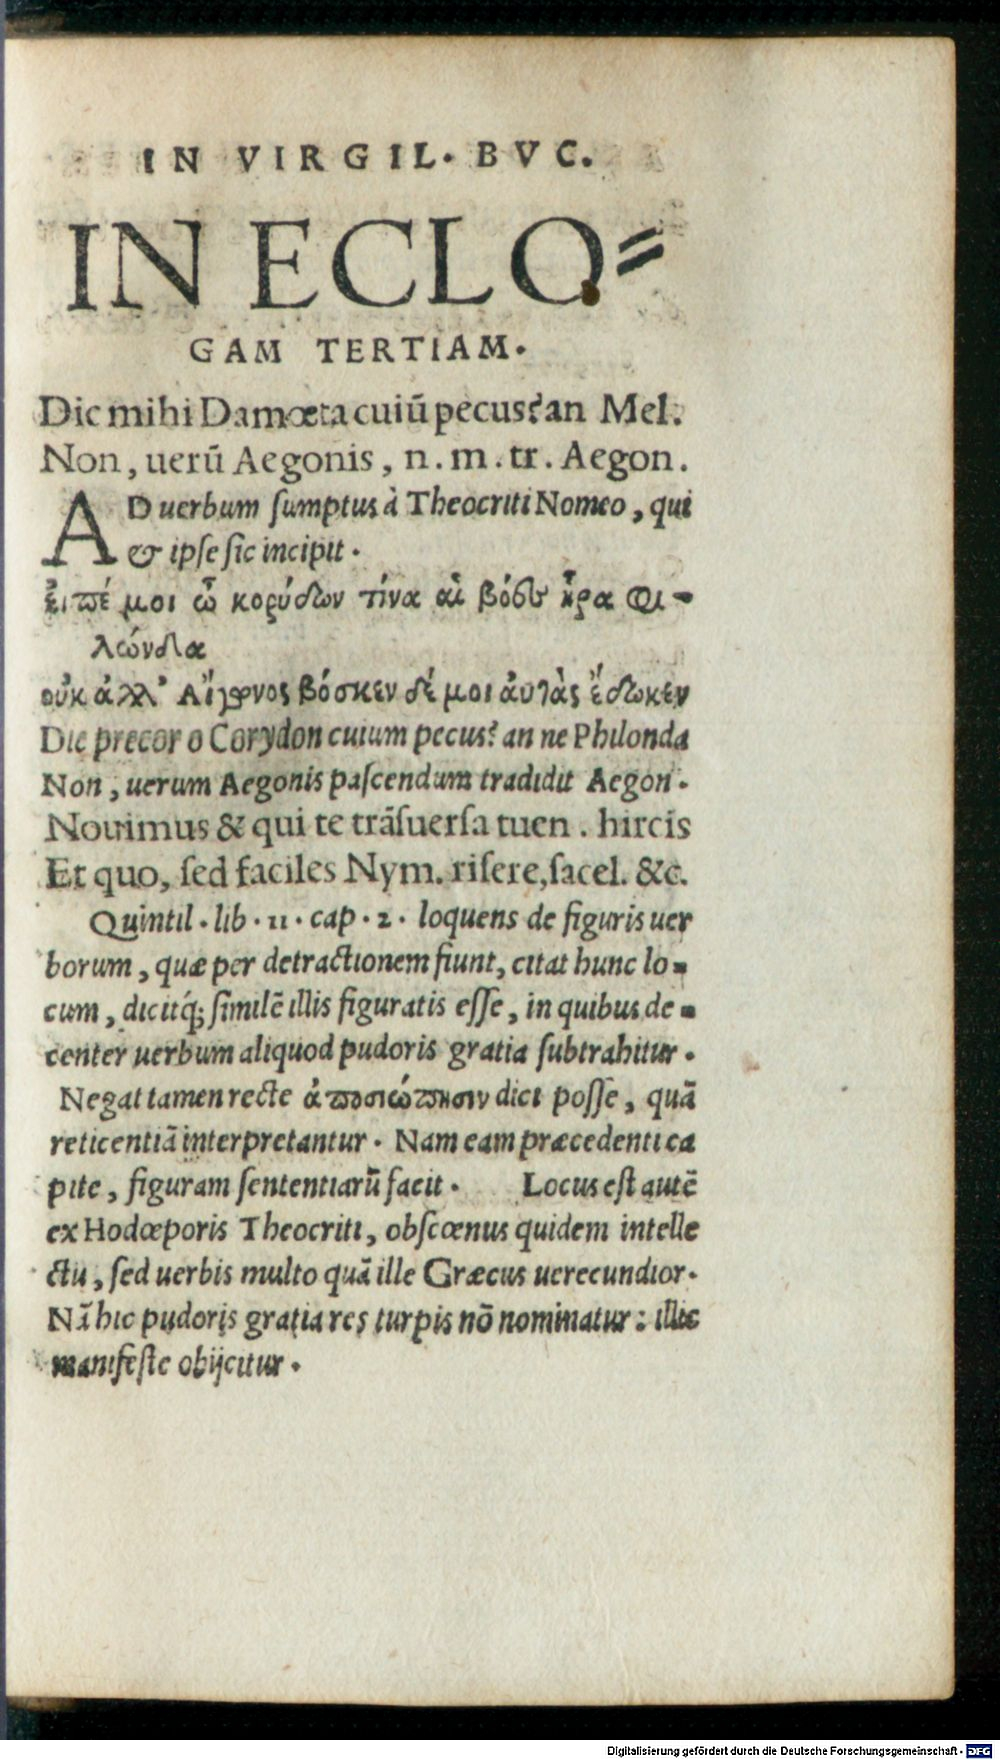 IN VIRGIL. BVC.
IN ECLO=
GAM TERTIAM.
Dic mihi Damœta cuiũ pecus? an Mel.
Non, uerũ Aegonis, n. m. tr. Aegon.
AD uerbum sumptus à Theocriti Nomeo, qui
& ipse sic incipit.
ἐιπέ μοι ὦ κορύδων τίνα αἱ βόες ἦρα Φι-
λώνδα
οὐκ ἀλλ' Αἴγωνος βόσκεν δέ μοι ἀυτὰς ἔδωκεν
Dic precor o Corydon cuium pecus? an ne Philonda
Non, uerum Aegonis pascendum tradidit Aegon.
Nouimus & qui te trãsuersa tuen. hircis
Et quo, sed faciles Nym. risere, sacel. &c.
Quintil. lib. 11. cap. 2. loquens de figuris uer
borum, quæ per detractionem fiunt, citat hunc lo-
cum, dicitq́; similẽ illis figuratis esse, in quibus de-
center uerbum aliquod pudoris gratia subtrahitur.
Negat tamen recte ἀποσιώπησιν dici posse, quã
reticentiã interpretantur. Nam eam præcedenti ca
pite, figuram sententiarũ facit. Locus est autẽ
ex Hodœporis Theocriti, obscœnus quidem intelle
ctu, sed uerbis multo quã ille Græcus uerecundior.
Nã hic pudoris gratia res turpis nõ nominatur: illic
manifeste obijcitur.
Digitalisierung gefördert durch die Deutsche Forschungsgemeinschaft - DFG